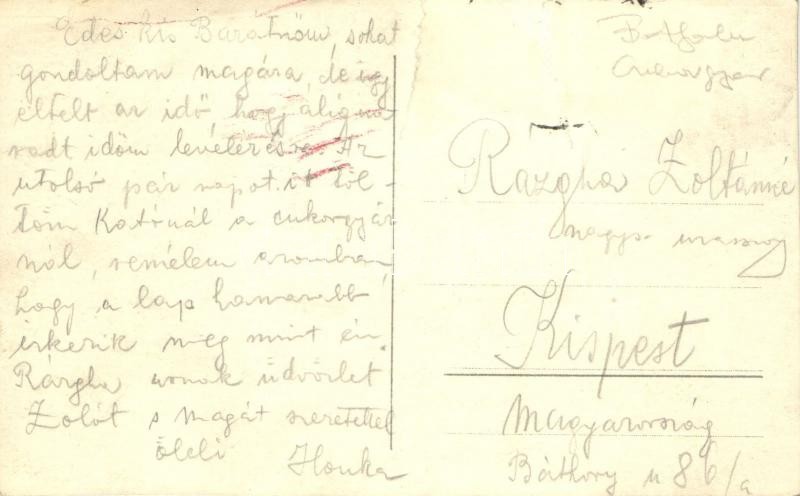 Edes kis Barátnőm, sokat
gondoltam magára, de úgy
eltelt az idő, hogy álig ma-
radt időm levélerésre. Az
utolsó pár napot itt töl-
töm Katónál a cukorgyár
nál, remélem azomban
hogy a lap hamarabb
érkezik meg mint én.
Rázgha uonak üdvözlet
Zolót s magát szeretettel
öleli Ilonka
Botfalu
Cukorgyár
Razgha Zoltánné
nagys. urasszony
Kispest
Magyarország
Báthory u 86/a